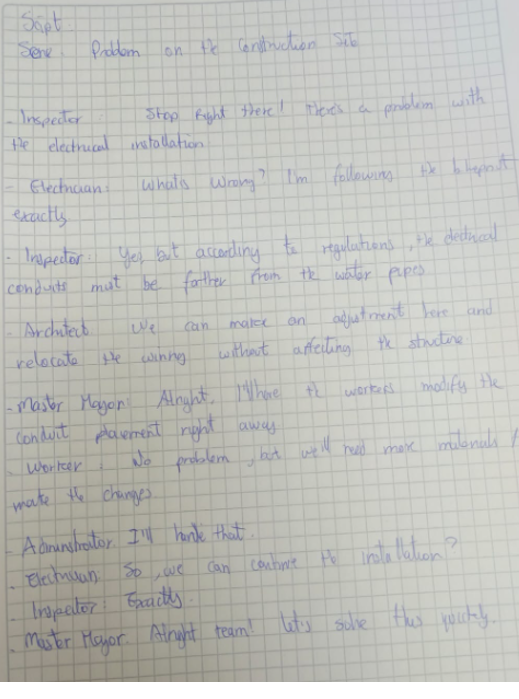 Script
Scene: Problem on the Construction Site
- Inspector Stop Right there! There's a problem with
the electrical installation
- Electrician: What's wrong? I'm following the
exactly
- Inspector: Yes, but according to regulations, the electrical
conduits must be farther from the water pipes
- Architect We can make an adjustment here and
relocate the wiring without affecting the structure
- Master Mayor: Alright, I'll have the workers modify the
conduit placement right away
- Worker: No problem, but we'll need more materials
make the changes
- Administrator I'll handle that.
- Electrician: So, we can continue the installation?
- Inspector: Exactly.
- Master Mayor. Alright team! let's solve this quickly.